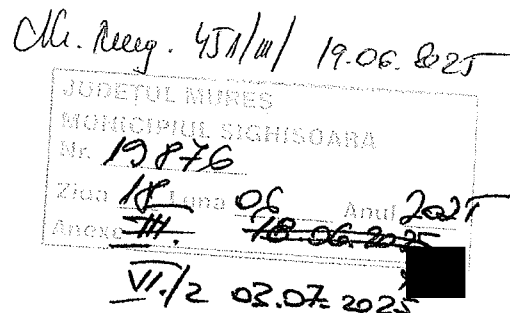 Nr. Reg. 451/III/ 19.06.2025
JUDEȚUL MUREȘ
MUNICIPIUL SIGHIȘOARA
Nr. 19876
Ziua 18 Luna 06 Anul 2025
Anexe III. 18.06.2025
VI./2 03.07.2025